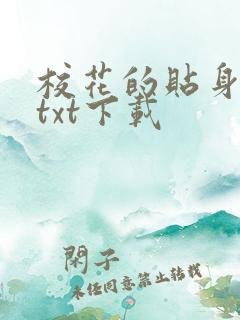 校花的貼身
txt下載
閑子
未任同意禁止转载